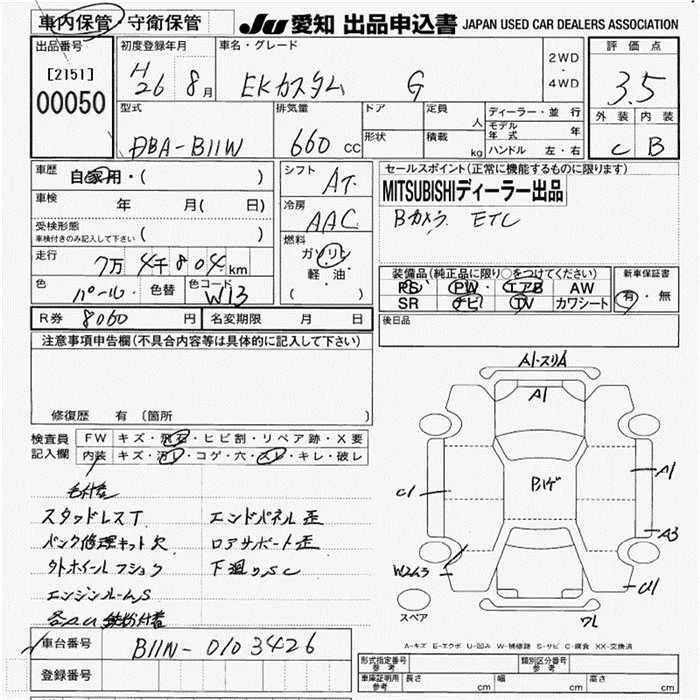 車内保管・守衛保管
JU 愛知 出品申込書 JAPAN USED CAR DEALERS ASSOCIATION
出品番号
[2151]
00050
初度登録年月
H26 8月
車名・グレード
EKカスタム G
2WD
・
4WD
評価点
3.5
外装 内装
C B
型式
DBA-B11W
排気量
660 cc
ドア
形状
定員 人
積載 kg
ディーラー・並行
モデル年式 年
ハンドル 左・右
車歴
自家用・( )
車検
年 月( 日)
受検形態
車検付きのみ記入して下さい( )
走行
7万4千804km
色
パール
色替
色コード
W13
シフト
AT
冷房
AAC
燃料
ガソリン
軽・油
( )
セールスポイント(正常に機能するものに限ります)
MITSUBISHIディーラー出品
Bカメラ ETC
装備品(純正品に限り○をつけてください)
PS PW エアB AW
SR ナビ TV カワシート
新車保証書
有・無
R券 8060 円 名変期限 月 日
後日品
注意事項申告欄(不具合内容等は具体的に記入して下さい)
修復歴 有 〔箇所 〕
検査員記入欄
FW キズ・飛石・ヒビ割・リペア跡・X要
内装 キズ・汚レ・コゲ・穴・スレ・キレ・破レ
スタッドレスT
パンク修理キット欠
タトホイールフショク
エンジンルームS
エンドパネル歪
ロアサポート歪
下廻りSC
A1・スリA
A1
Bハゲ
C1
A1
A3
W2A3
U1
スペア
A-キズ E-エクボ U-凹み W-補修跡 S-サビ C-腐食 XX-交換済
車台番号 B11W-0103426
登録番号
形式指定番号 参考
類別区分番号 参考
車庫証明用 参考
長さ cm
幅 cm
高さ cm